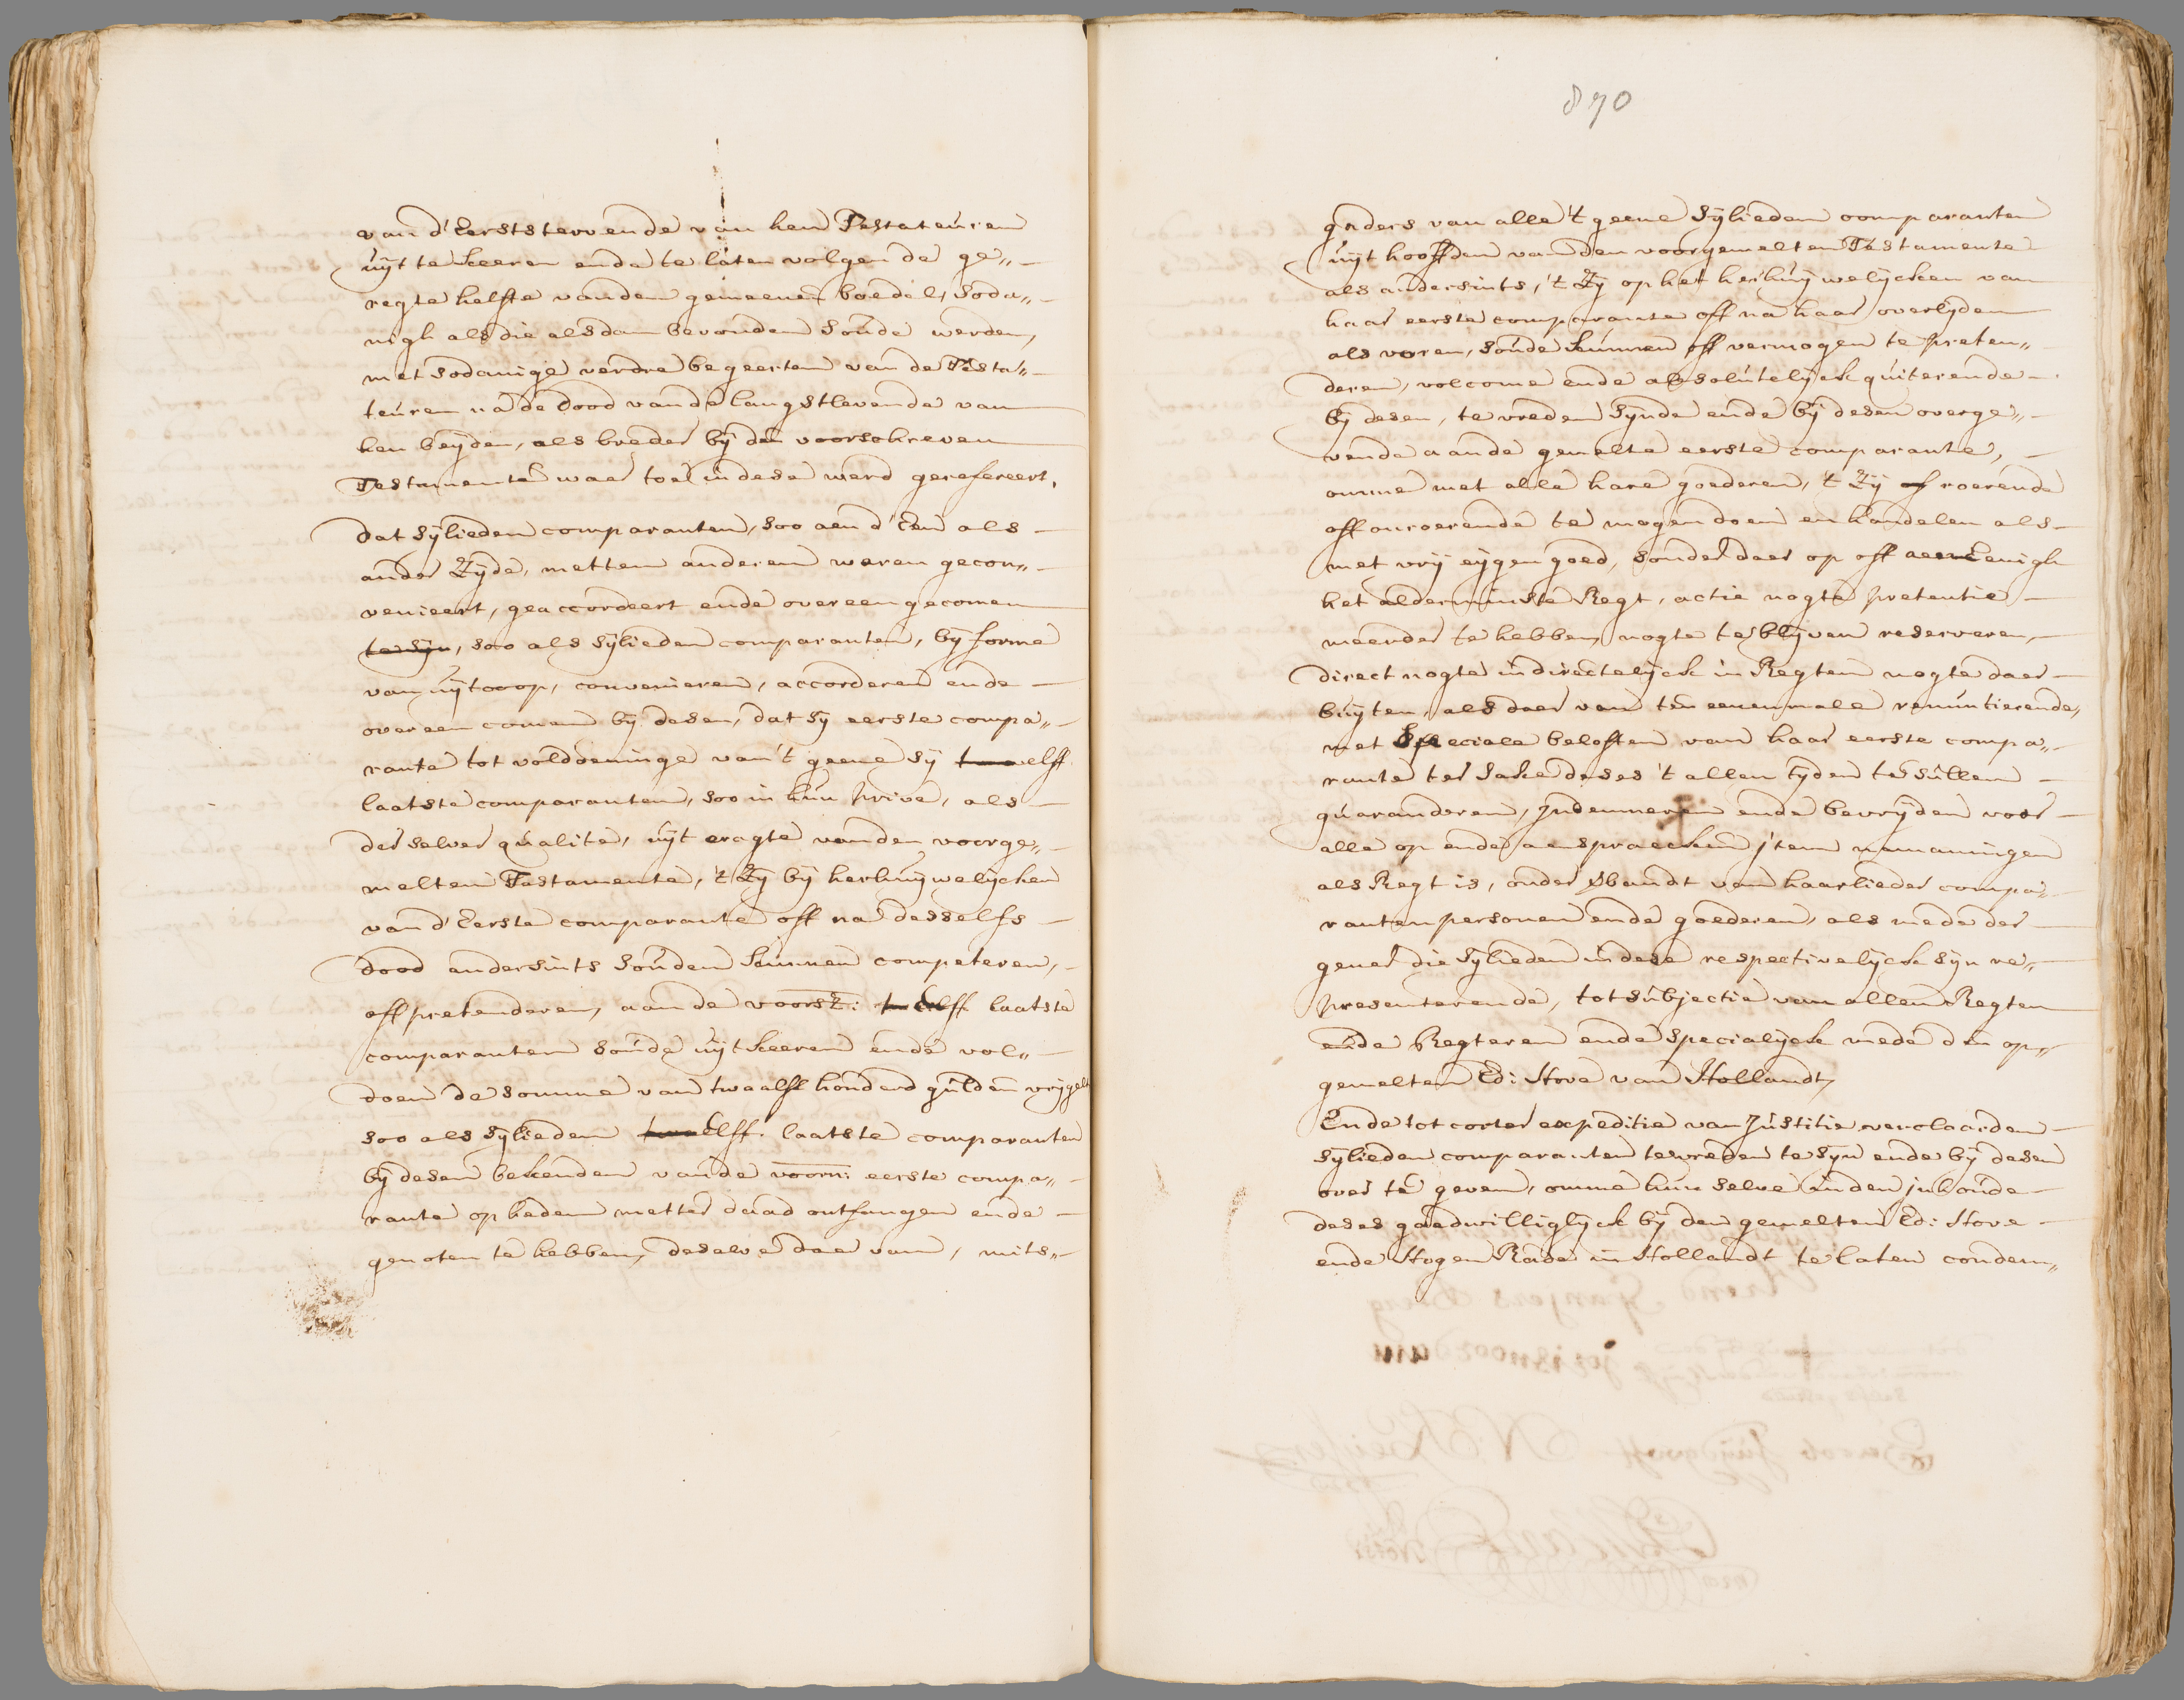 van d'Eerststervende van hen Testateuren
uijt te keeren ende te laten volgen de ge„
regte helfte vanden gemeenen boedel, soda„
nigh als die alsdan bevonden soude werden,
met sodanige verdre begeerten van de Testa„
teuren na de dood vande langstlevende van
hen beijden, als breder bij den voorschreven
Testamente waer toe in dese werd gerefereert,
dat sijlieden comparanten, soo aen d'Een als
ander Zijde, metten anderen waren gecon„
venieert, geaccordeert ende overeengecomen
te sijn, soo als sijlieden comparanten, bij forme
van uijtcoop, convenieren, accorderen ende
overeen comen bij desen, dat sij eerste compa„
rante tot voldoeninge van 't geene sij elff
laatste comparanten, soo in hun prive, als
der selver qualite, uijt cragte vanden voorge„
melten Testamente, 't Zij bij herhuijwelijcken
van d'Eerste comparante off na desselfs
dood andersints souden kunnen competeren,
off pretenderen, aan de voorsz: Elff laatste
comparanten soude uijtkeeren ende vol„
doen de somme van twaalff honderd gulden vrijgelt
soo als sijlieden Elff laatste comparanten
bij desen bekenden van de voorn: eerste compa„
rante op heden metter daad ontfangen ende
genoten te hebben, deselve daer van, mits„
890
gaders van alle 't geene sijlieden comparanten
uijt hooffden van den voorgemelten Testamente
als andersints, 't Zij op het herhuijwelijcken van
haar eerste comparante off na haar overlijden
als voren, soude kunnen off vermogen te preten„
deren, volcome ende absolutelijck quiterende
bij desen, te vreden sijnde ende bij desen overge„
vende aande gemelte eerste comparante,
omme met alle hare goederen, 't Zij roerende
off onroerende te mogen doen en handelen als
met vrij eijgen goed, sonder daer op off aen Eenigh
het alderminste Regt, actie nogte pretentie
meerder te hebben, nogte te blijven reserveren,
direct nogte indirectelijck in Regten nogte daer
buijten, als daer van ten eenenmale renuntierende,
met speciale beloften van haar eerste compa„
rante ter sake deses 't allen tijden te sullen
guaranderen, Indemneren ende bevrijden voor
alle op ende aenspraecken item namaningen
als Regt is, onder Vbandt van haarlieder compa„
ranten personen ende goederen, als mede der
gener die sijlieden in dese respectivelijck sijn re„
presenterende, tot subjectie van allen Regten
ende Regteren ende specialijck mede den op„
gemelten Ed: Hove van Hollandt,
Ende tot corter expeditie van Justitie verclaarden
sijlieden comparanten tevreden te sijn ende bij desen
over te geven, omme hun selve inden inhoude
deses goedwilliglijck bij den gemelten Ed: Hove
ende Hogen Rade in Hollandt te laten condem„